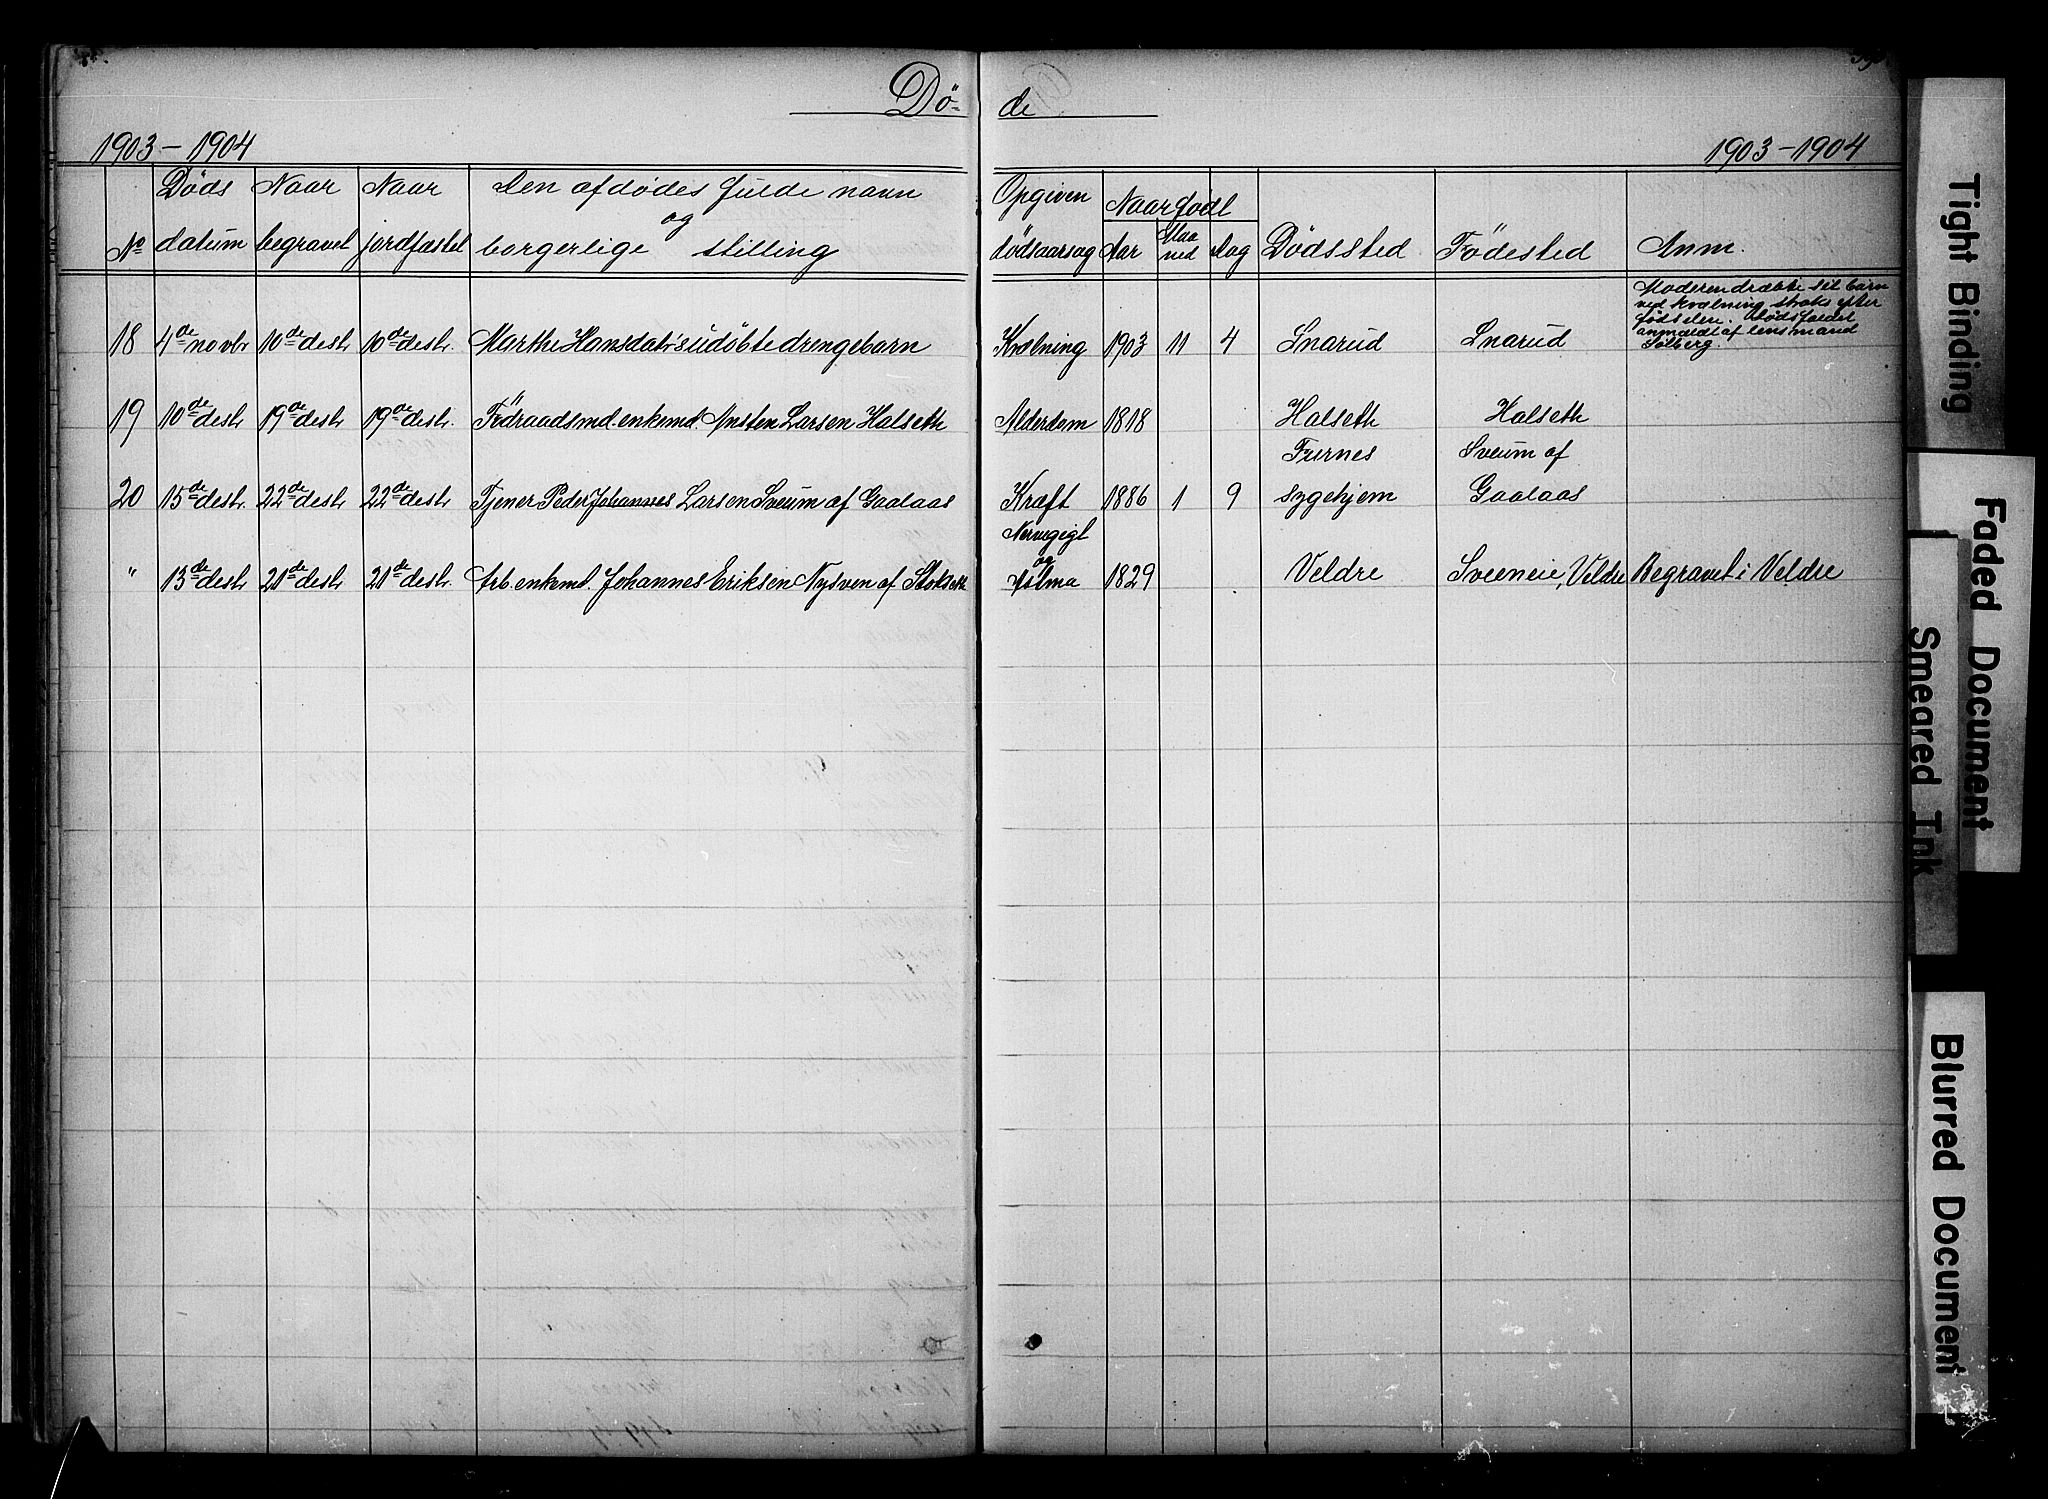 Dö- de
1903 - 1904
1903 - 1904
No
Döds datum
Naar begravet
Naar jordfæstet
Den afdödes fulde navn og borgerlige stilling
Opgiven dödsaarsag
Naar födt
Aar
Maaned
Dag
Dödssted
Födested
Anm.
18 4de novbr 10de desbr 10de desbr. Marthe Hansdatr's udöbte drengebarn Kvælning 1903 11 4 Snarud Snarud
Moderen dræbte sit barn
ved kvælning straks efter
fødselen. Dødsfaldet
anmeldt af lensmand
Solberg.
19 10de desbr 19de desbr 19de desbr. Födraadsmd. enkemd. Ansten Larsen Halseth Alderdom 1818 Halseth Halseth
20 15de desbr. 22de desbr 22de desbr Tjener Peder Johannes Larsen Sveum af Gaalaas Kræft 1886 1 9 Furnes sygehjem Sveum af Gaalaas
" 13de desbr 21de desbr 21de desbr. Arb. enkemd. Johannes Eriksen Nysven af Stokseth Nervegigt og Astma 1829 Veldre Sveeneie, Veldre Begravet i Veldre
Tight Binding
Faded Document
Smeared Ink
Blurred Document